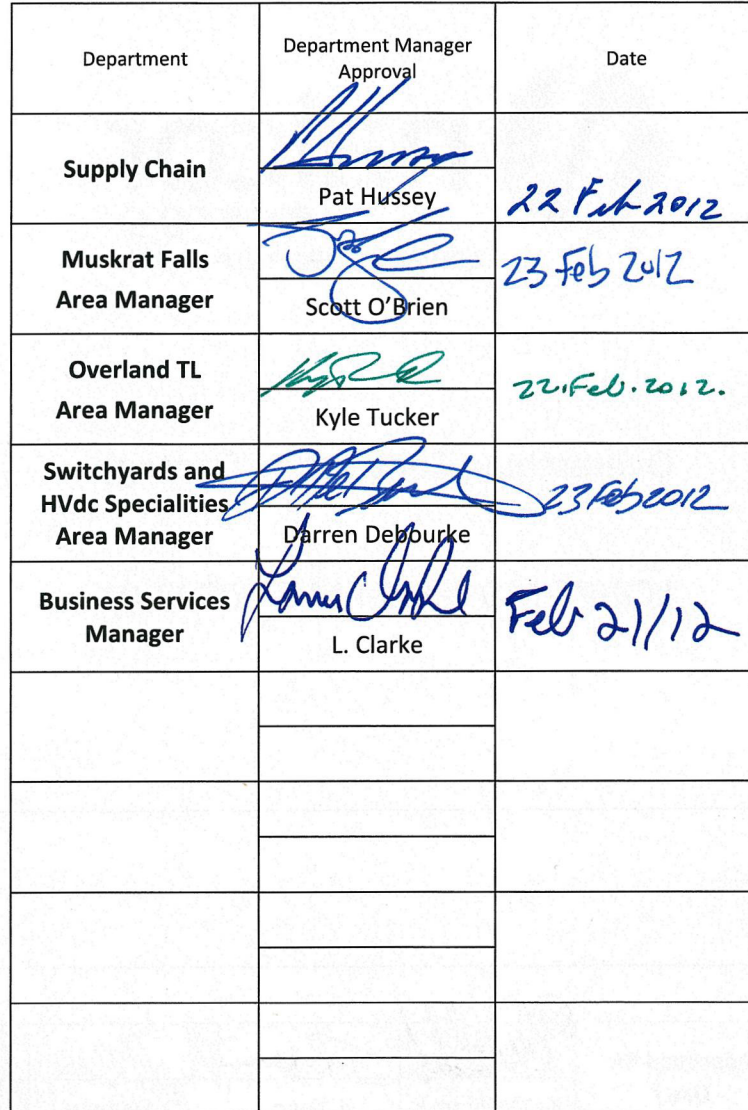 Department
Department Manager
Approval
Date
Supply Chain
Pat Hussey
22 Feb 2012
Muskrat Falls
Area Manager
Scott O'Brien
23 Feb 2012
Overland TL
Area Manager
Kyle Tucker
22.Feb.2012.
Switchyards and
HVdc Specialities
Area Manager
Darren Debourke
23 Feb 2012
Business Services
Manager
L. Clarke
Feb 21/12